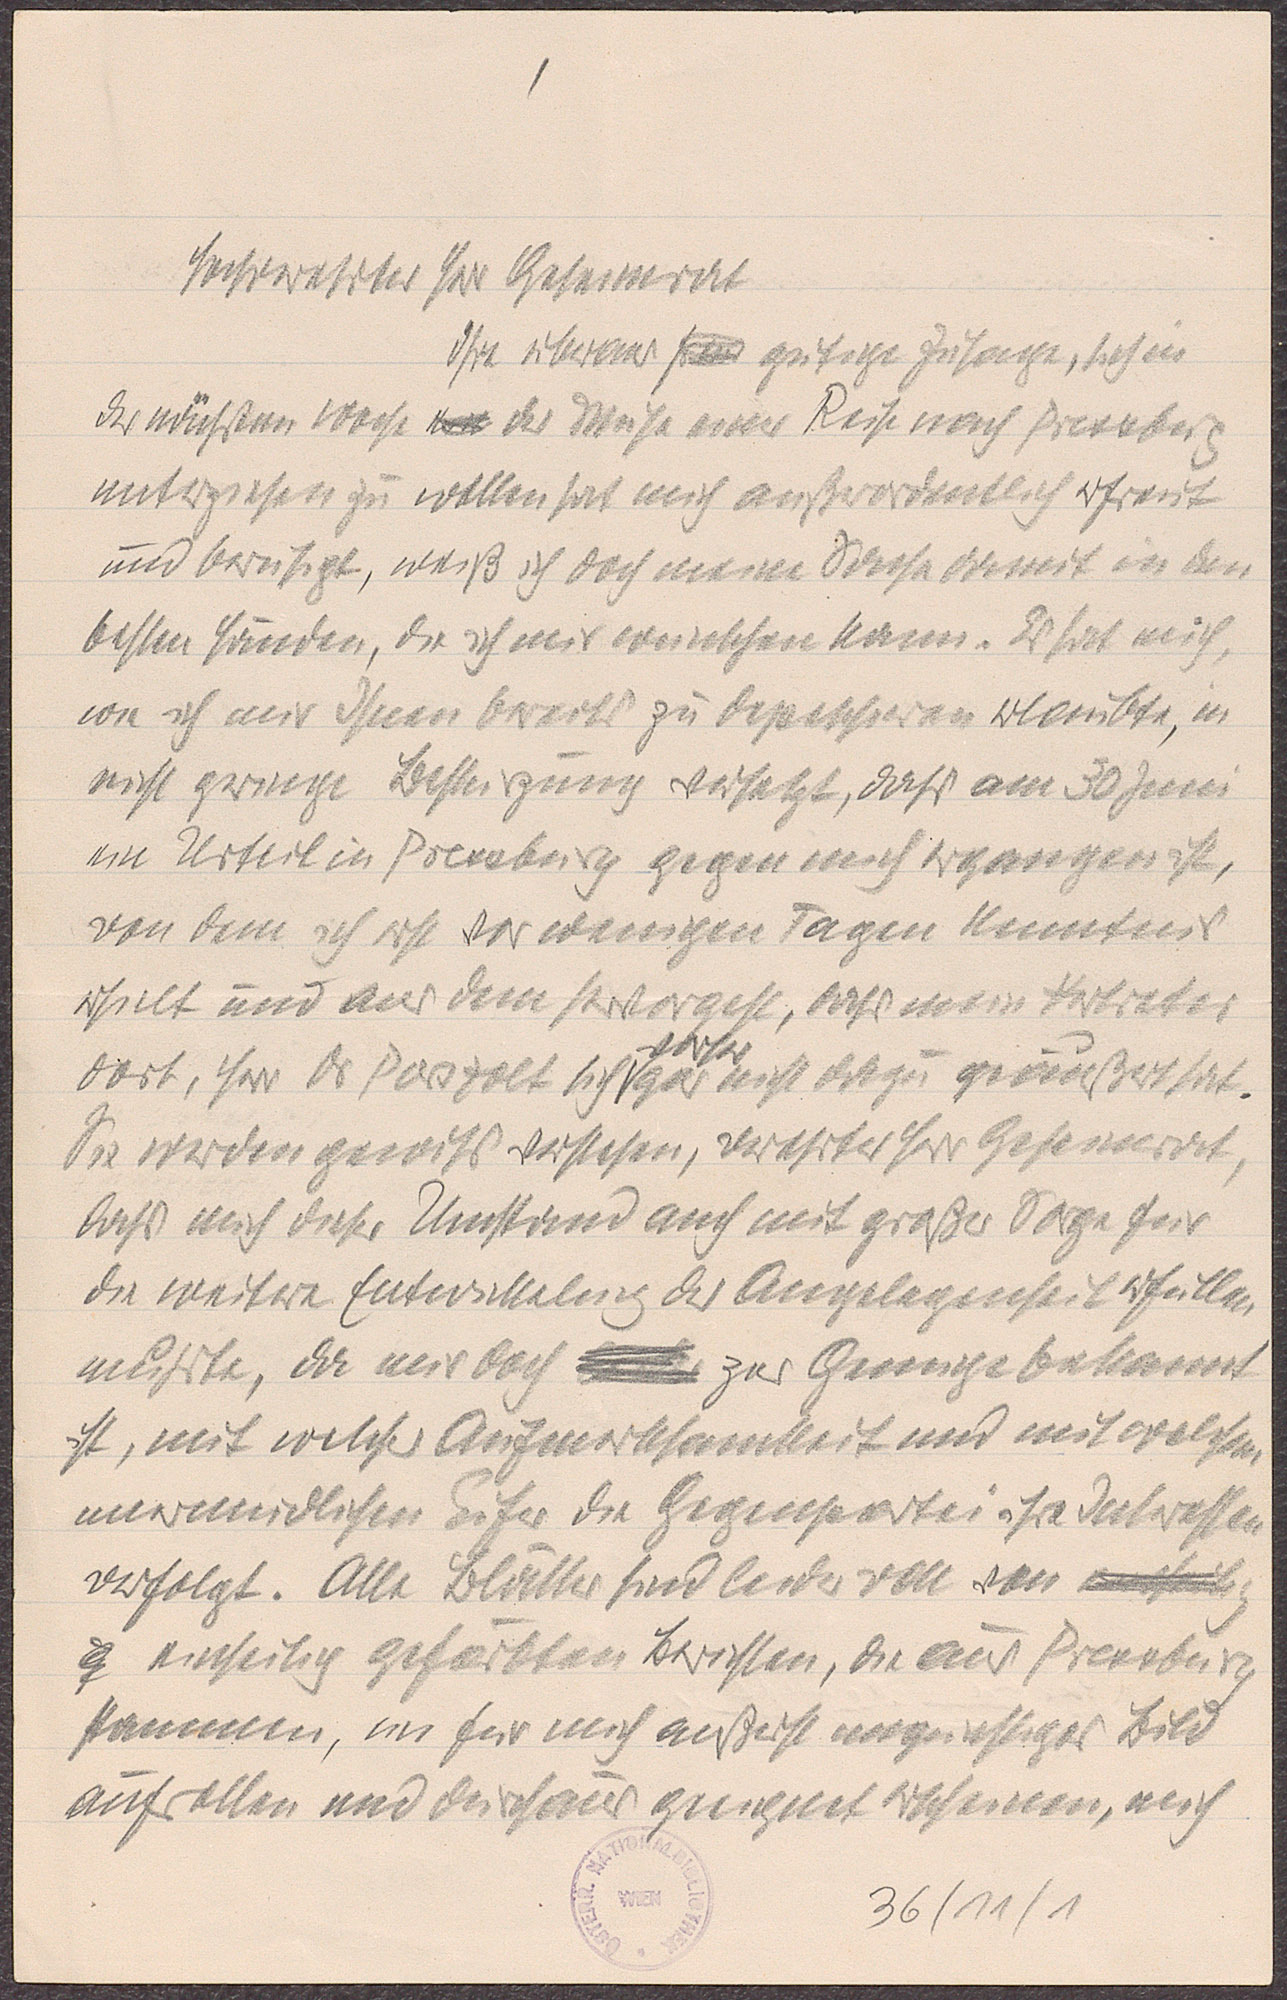 1
Hochverehrter Herr Geheimrat
Ihre überaus gütige Zusage, sich in
der nächsten Woche der Mühe einer Reise nach Pressburg
unterziehen zu wollen hat mich außerordentlich erfreut
und beruhigt, weiß ich doch meine Sache damit in den
besten Händen, die ich mir wünschen kann. Es hat mich,
wie ich mir Ihnen bereits zu depeschieren erlaubte, in
nicht geringe Bestürzung versetzt, dass am 30 Juni
ein Urteil in Pressburg gegen mich ergangen ist,
von dem ich erst vor wenigen Tagen Kenntnis
erhielt und aus dem hervorgeht, dass mein Vertreter
vorher
dort, Herr Dr sich gar nicht dazu geäußert hat.
Sie werden gewiss verstehen, verehrter Herr Geheimrat,
dass mich dieser Umstand auch mit großer Sorge für
die weitere Entwickelung der Angelegenheit erfüllen
musste, da mir doch zur Genüge bekannt
ist, mit welcher Aufmerksamkeit und mit welchem
unermüdlichen Eifer die Gegenpartei ihre Interessen
verfolgt. Alle Blätter sind leider voll von
einseitig gefärbten Berichten, die aus Pressburg
stammen, ein für mich äußerst ungünstiges Bild
aufrollen und durchaus geeignet erscheinen, mich
ÖSTERR. NATIONALBIBLIOTHEK WIEN
36/11/1